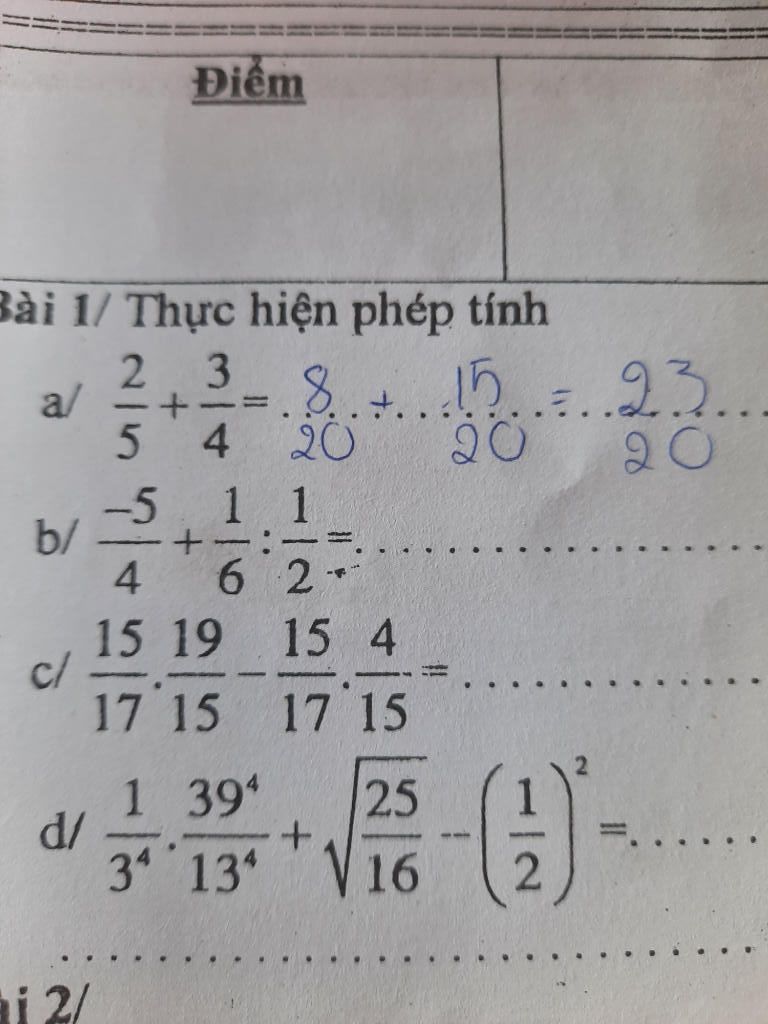 Điểm
Bài 1/ Thực hiện phép tính
a/ 2/5 + 3/4 = 8/20 + 15/20 = 23/20
b/ –5/4 + 1/6 : 1/2 = ..............
c/ 15/17 . 19/15 – 15/17 . 4/15 = .............
d/ 1/3⁴ . 39⁴/13⁴ + √(25/16) – (1/2)² = ......
2/